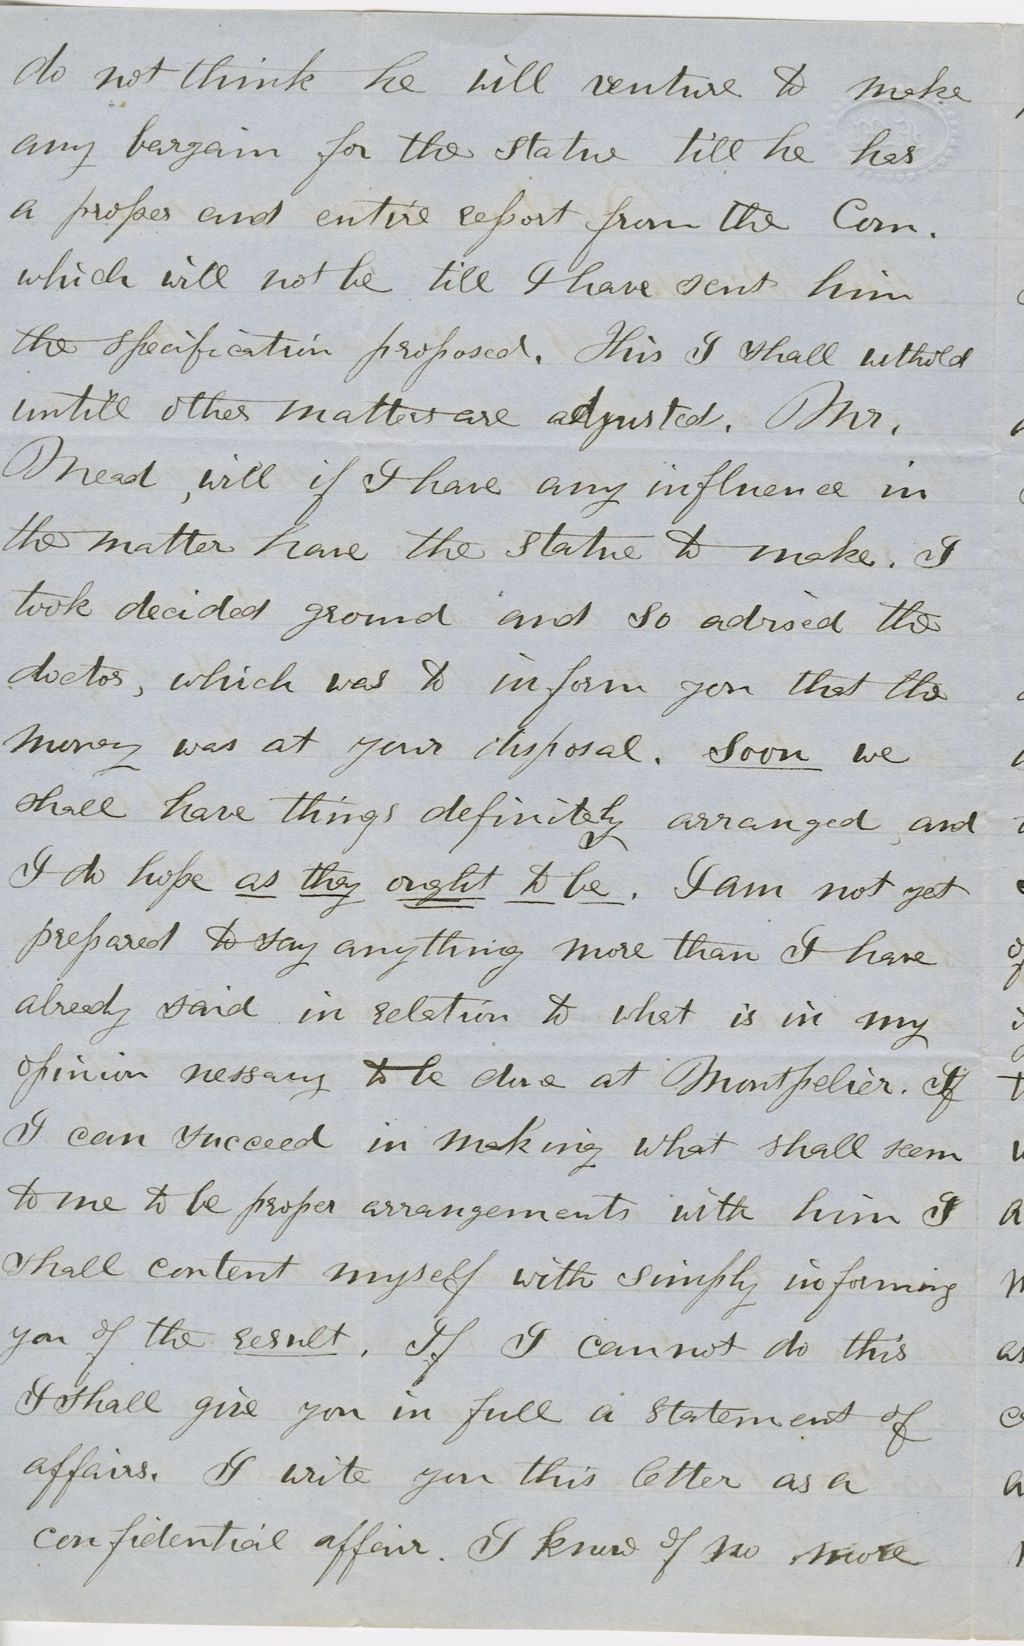 do not think he will venture to make
any bargain for the statue till he has
a proper and entire report from the Com.
which will not be till I have sent him
the specification proposed. This I shall withold
untill other matters are adjusted. Mr.
Mead, will if I have any influence in
the matter have the statue to make. I
took decided ground and so advised the
doctor, which was to inform you that the
money was at your disposal. Soon we
shall have things definitely arranged, and
I do hope as they ought to be. I am not yet
prepared to say anything more than I have
already said in relation to what is in my
opinion nessary to be done at Montpelier. If
I can succeed in making what shall seem
to me to be proper arrangements with him I
shall content myself with simply informing
you of the result. If I cannot do this
I shall give you in full a statement of
affairs. I write you this letter as a
confidential affair. I know of no more